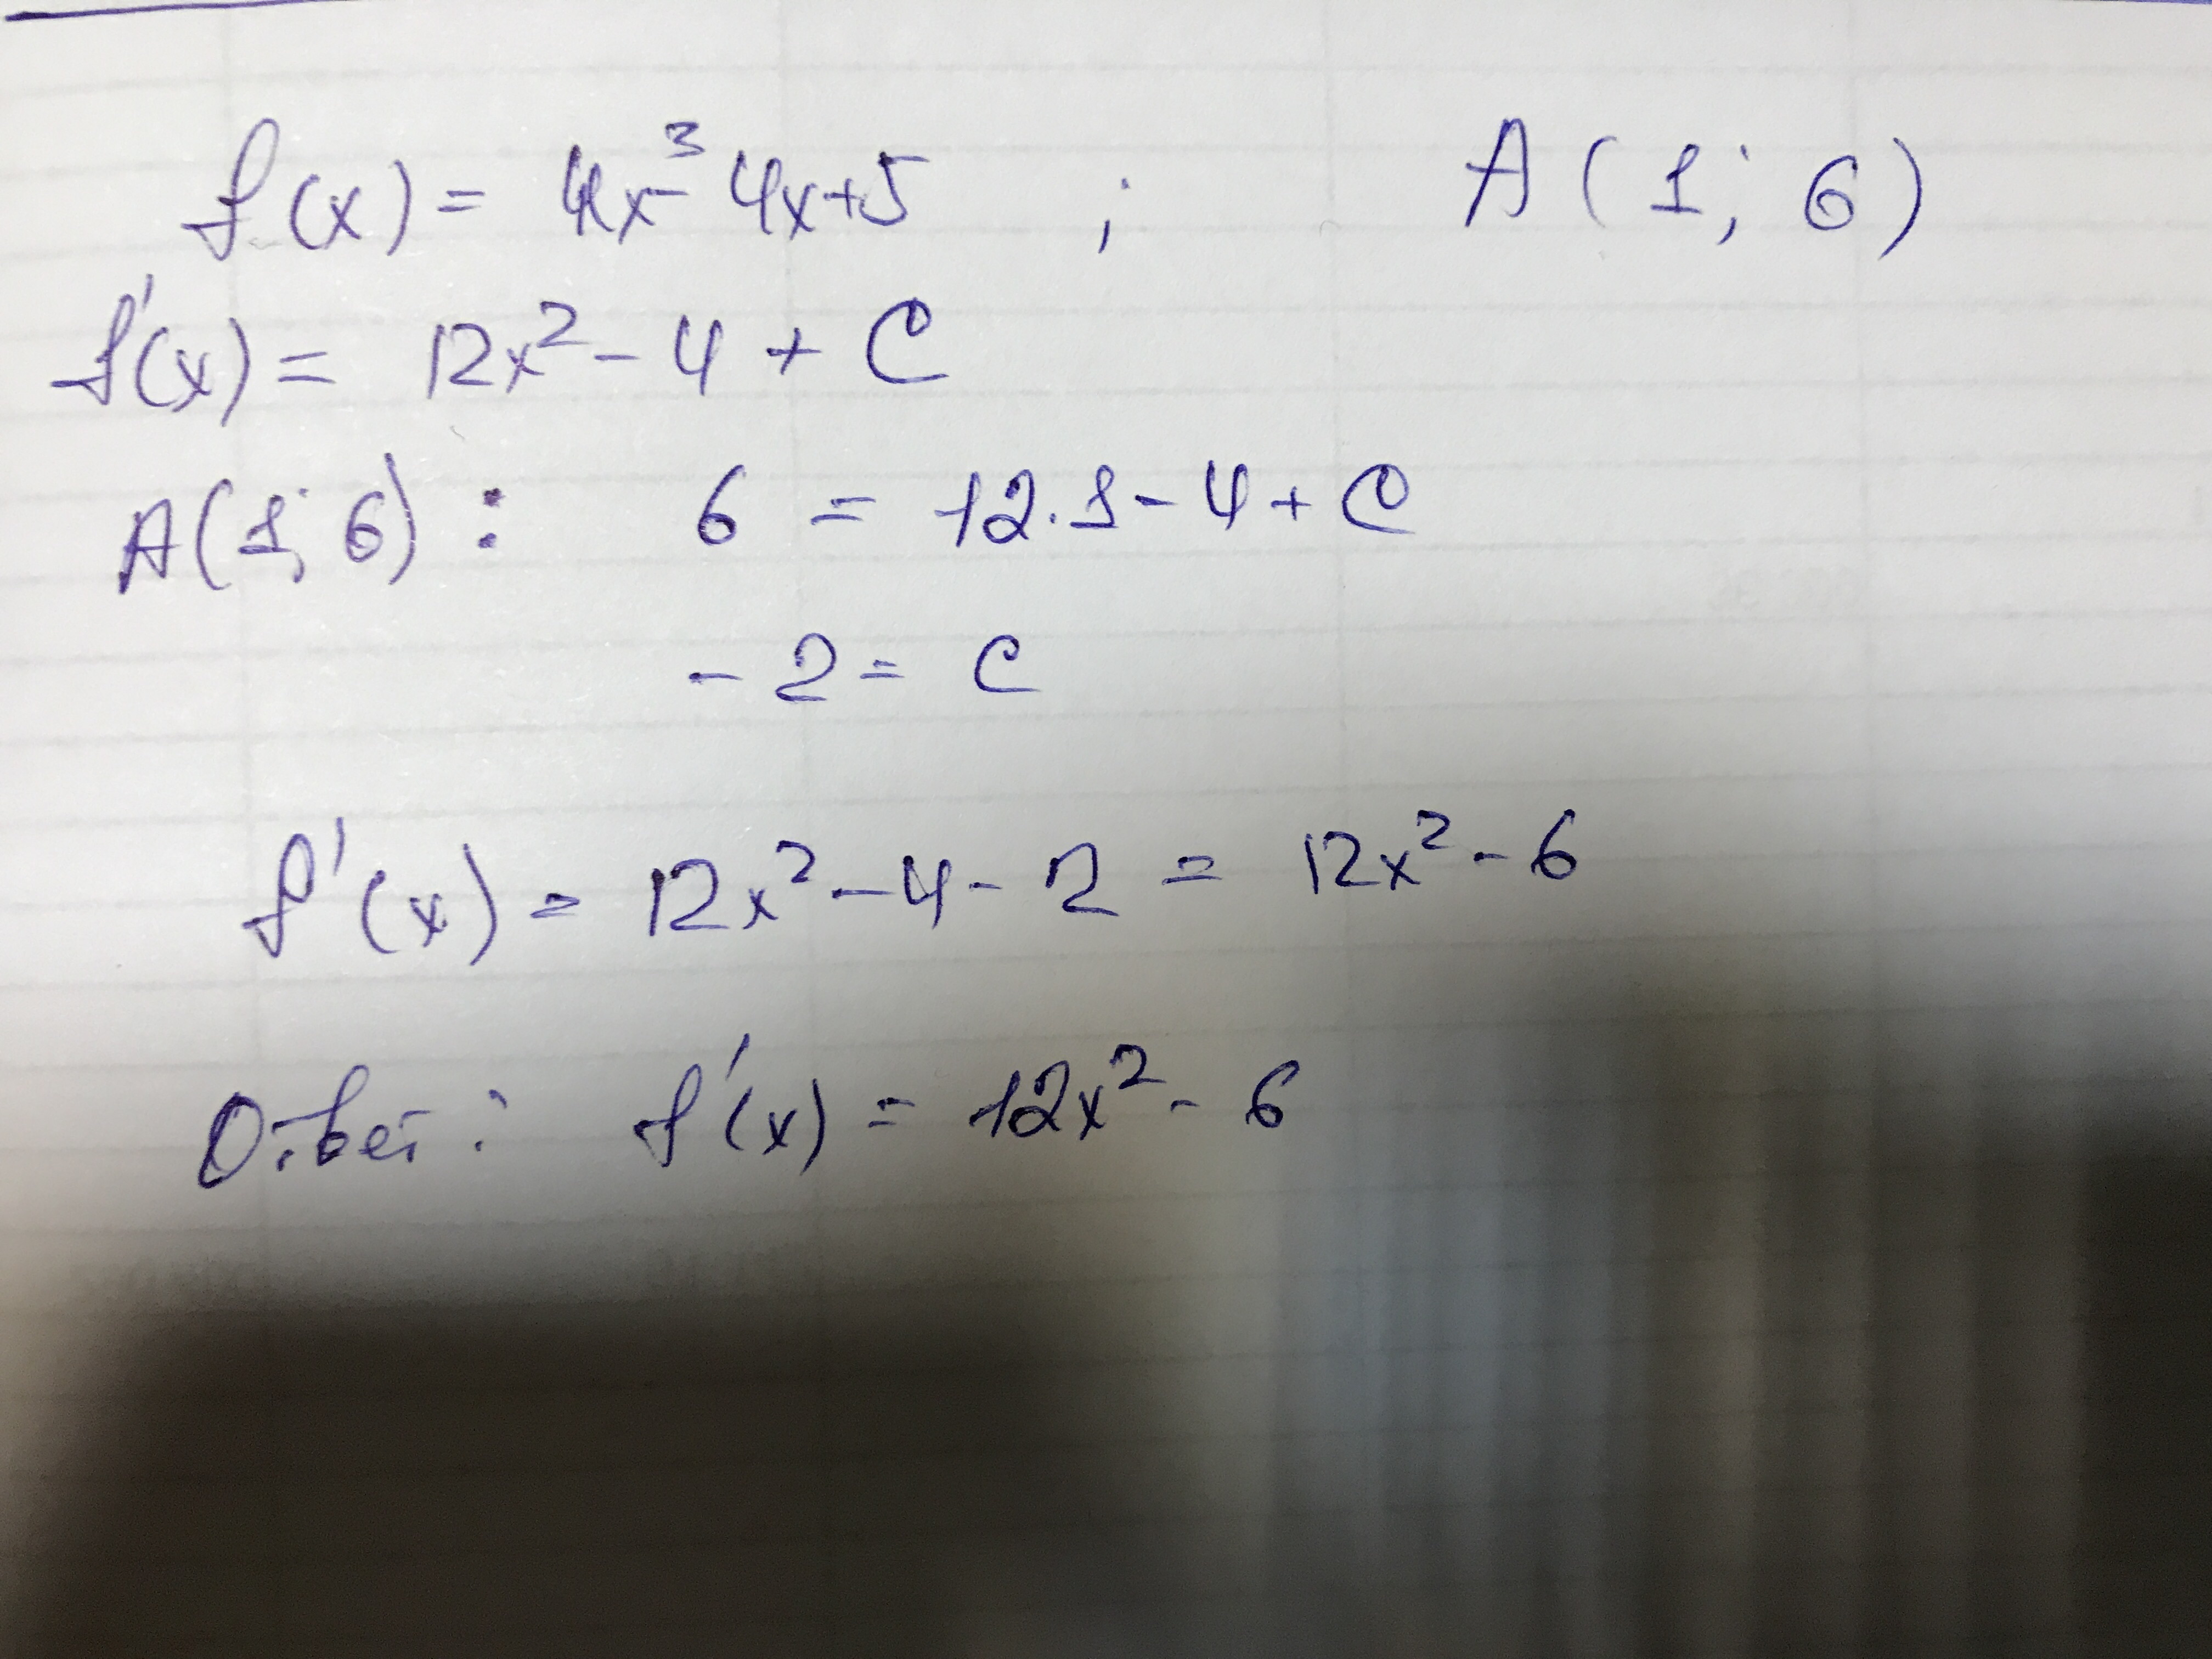 f(x) = 4x³-4x+5 ; A(1; 6)
f'(x) = 12x² - 4 + C
A(1; 6) : 6 = 12.1 - 4 + C
-2 = C
f'(x) = 12x² - 4 - 2 = 12x² - 6
Ответ: f'(x) = 12x² - 6